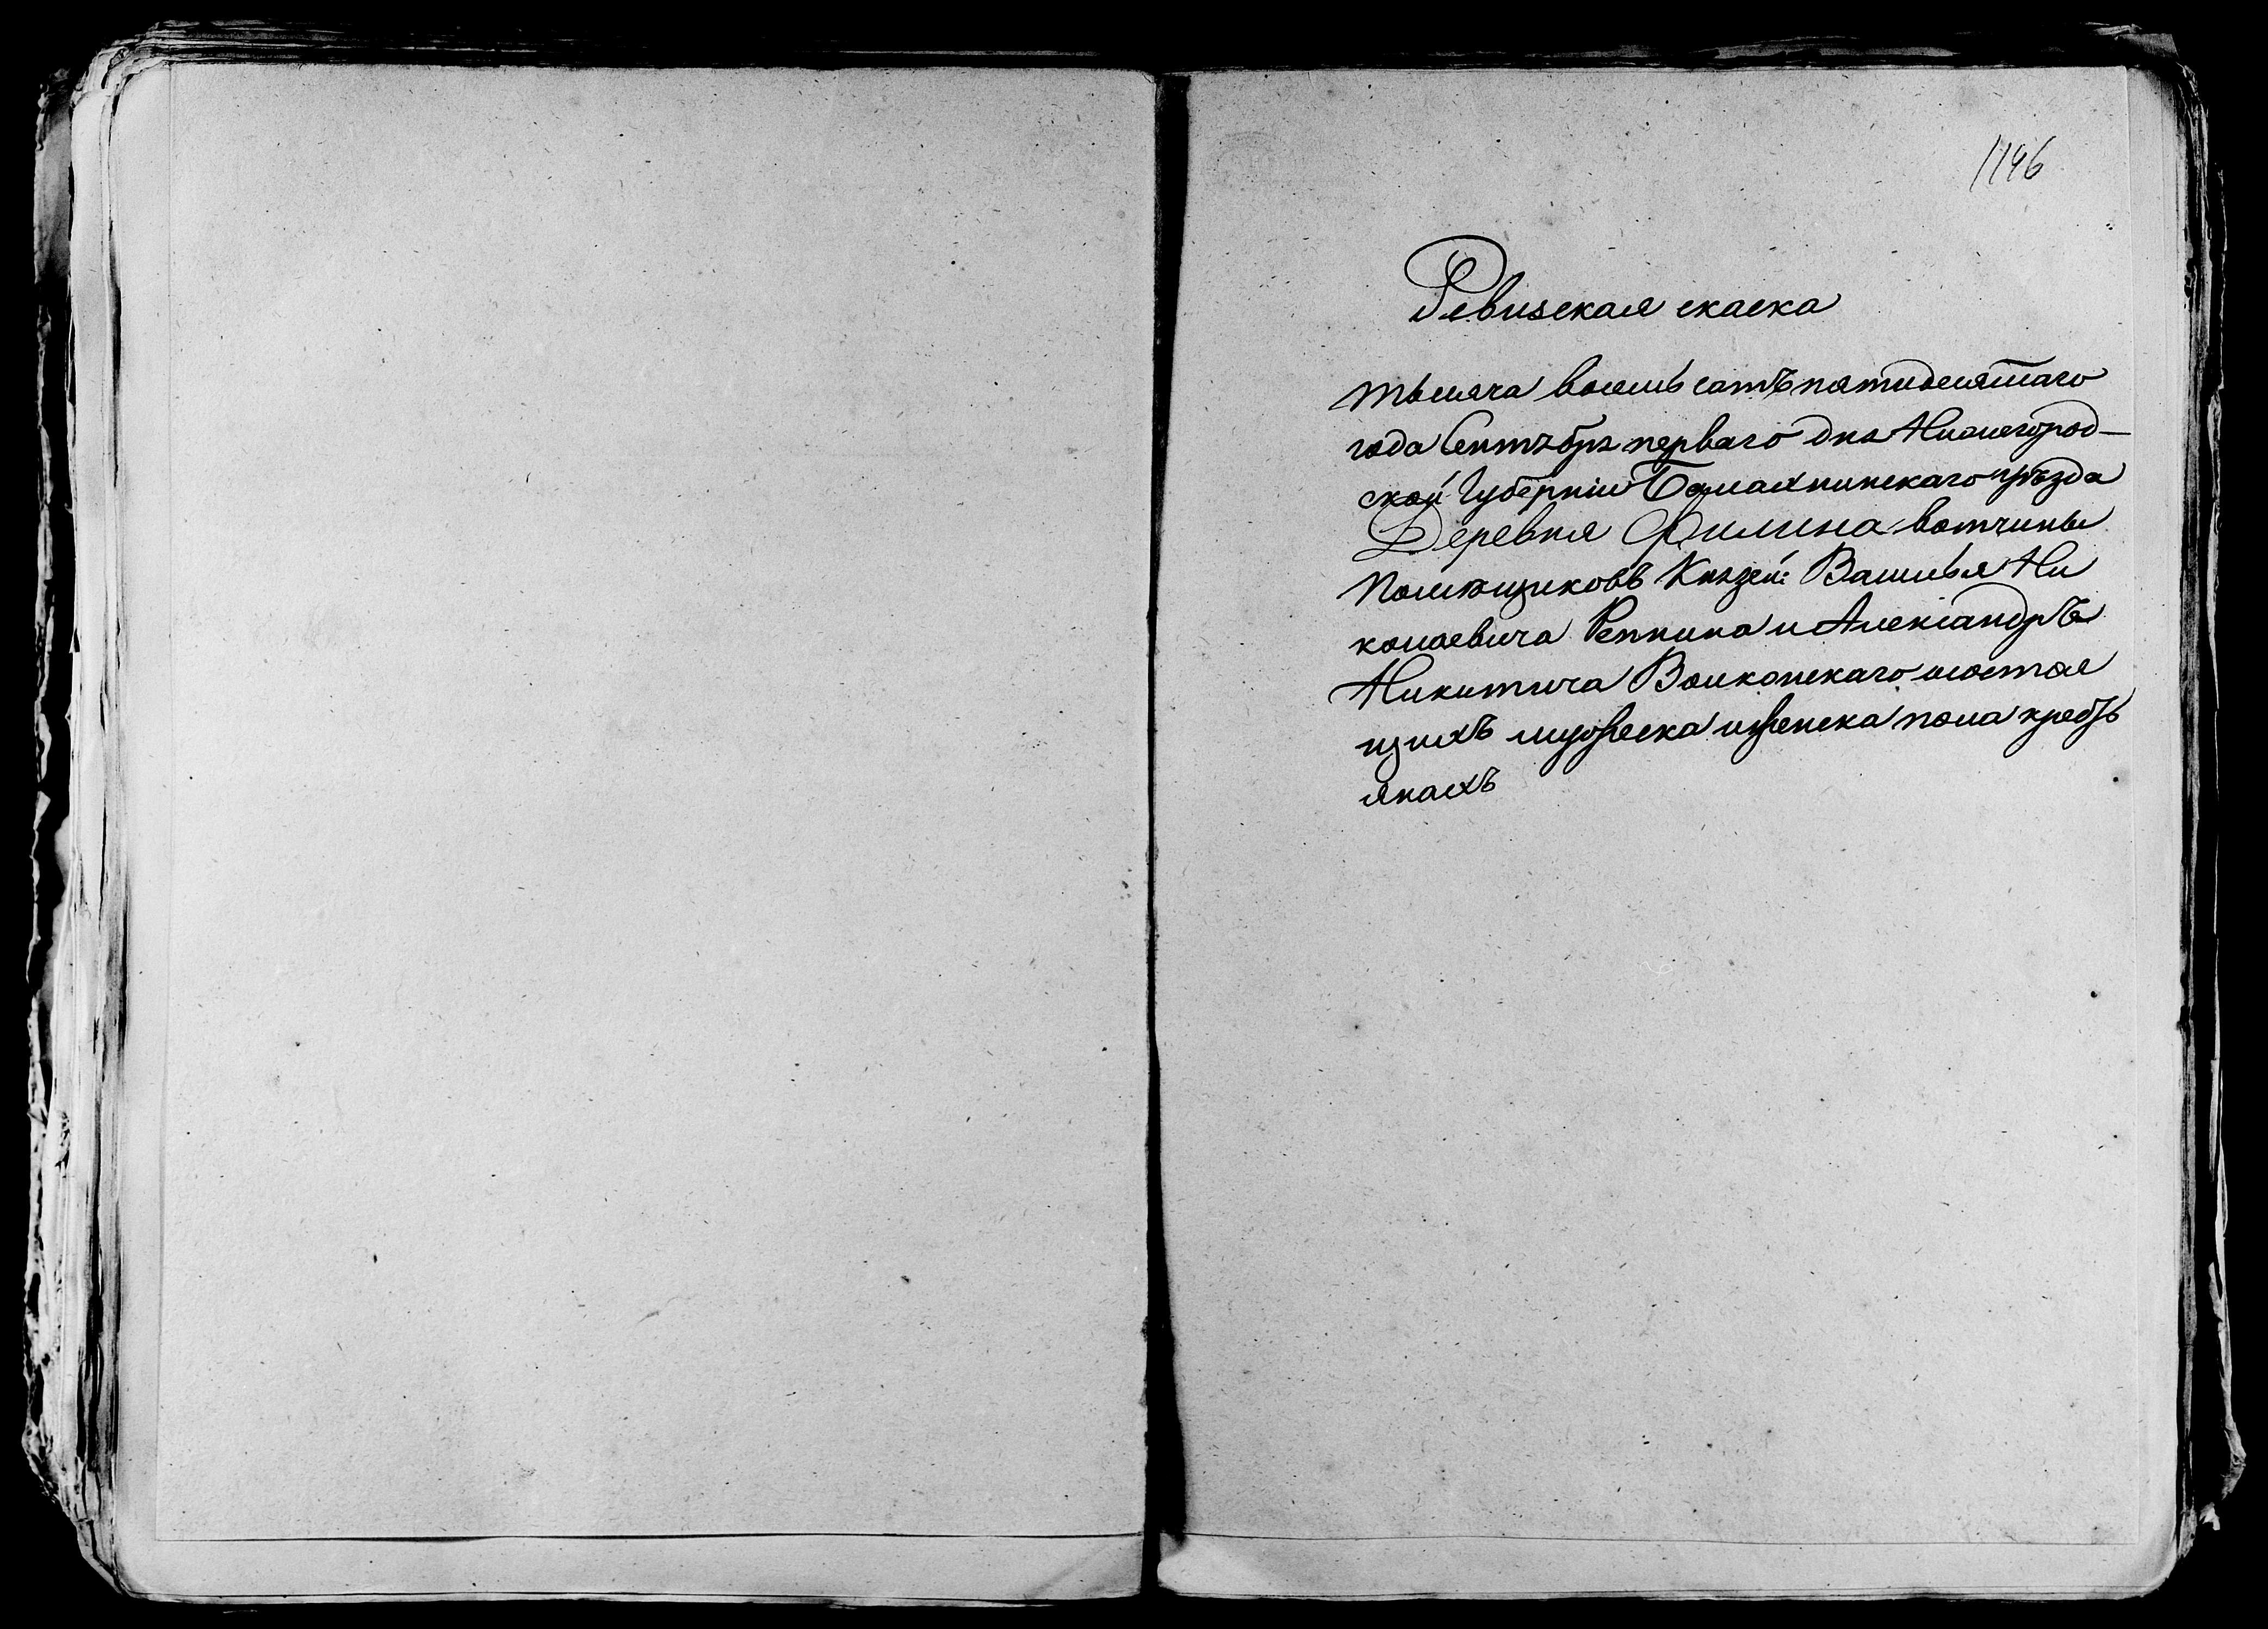 1146
Ревизская скаска
тысяча восемь сотъ пятидесятаго
года Сентября перваго дня Нижегород-
ской Губерніи Балахнинскаго уѣзда
Деревня Филина вотчины
Помѣщиковъ Князей: Василья Ни
колаевича Репнина и Александръ
Никитича Волконскаго осостоя
щихъ мужеска иженска пола кресть
янахъ